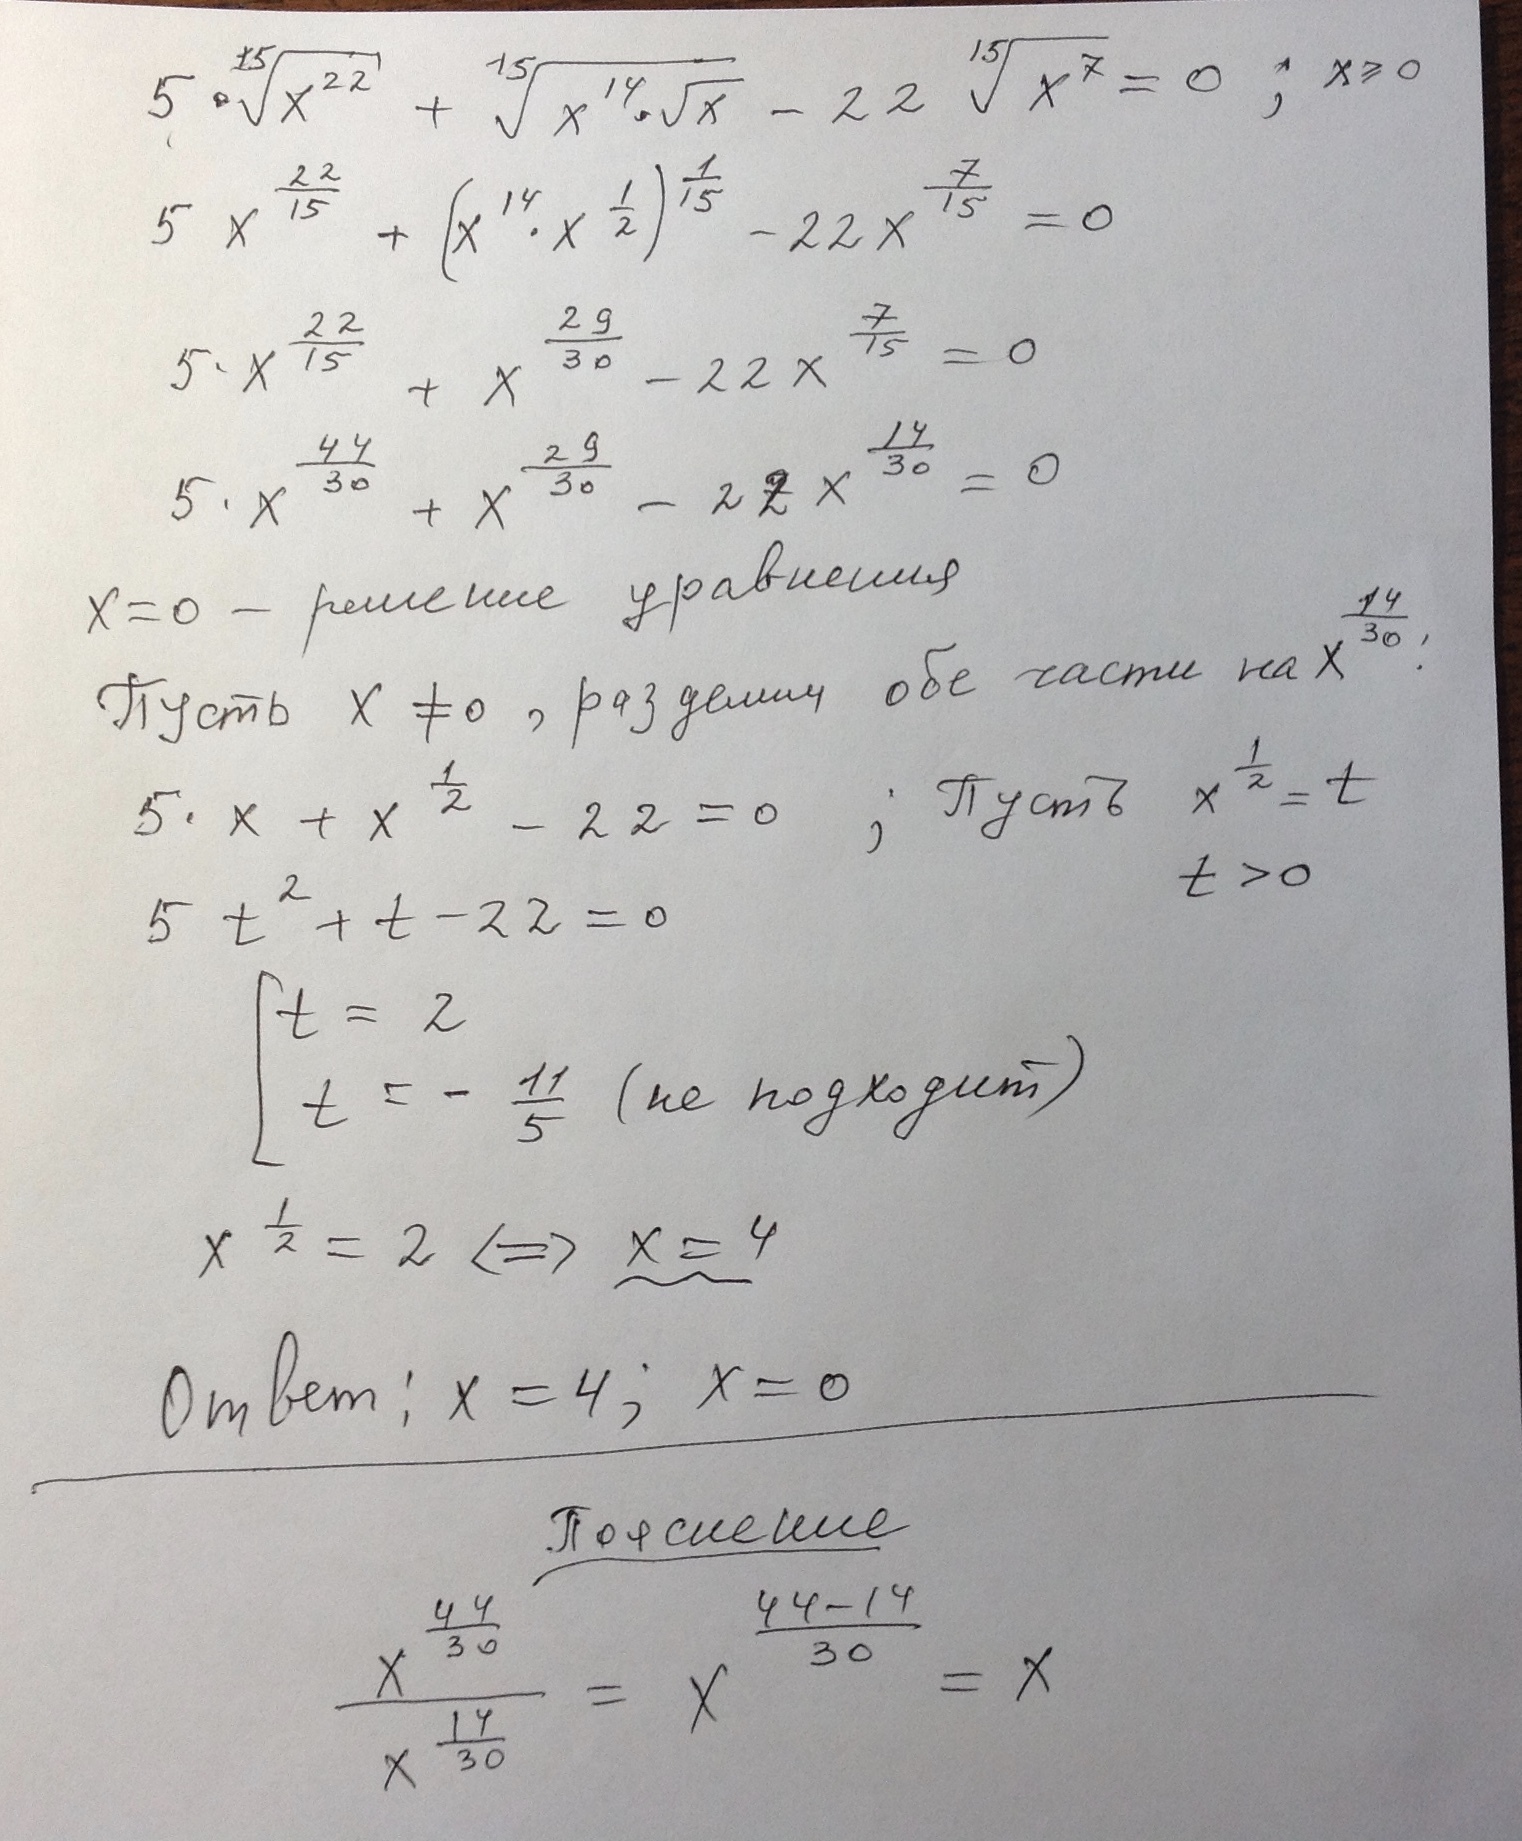 5·¹⁵√(x²²) + ¹⁵√(x¹⁴·√x) − 22 ¹⁵√(x⁷) = 0 ; x ≥ 0
5 x^(22/15) + (x¹⁴·x^(1/2))^(1/15) − 22x^(7/15) = 0
5·x^(22/15) + x^(29/30) − 22x^(7/15) = 0
5·x^(44/30) + x^(29/30) − 22x^(14/30) = 0
x=0 – решение уравнения
Пусть x ≠ 0, разделим обе части на x^(14/30):
5·x + x^(1/2) − 22 = 0 ; Пусть x^(1/2) = t
t > 0
5t² + t − 22 = 0
[ t = 2
t = − 11/5 (не подходит)
x^(1/2) = 2 <=> x = 4
Ответ: x = 4; x = 0
Пояснение
x^(44/30) / x^(14/30) = x^((44−14)/30) = x